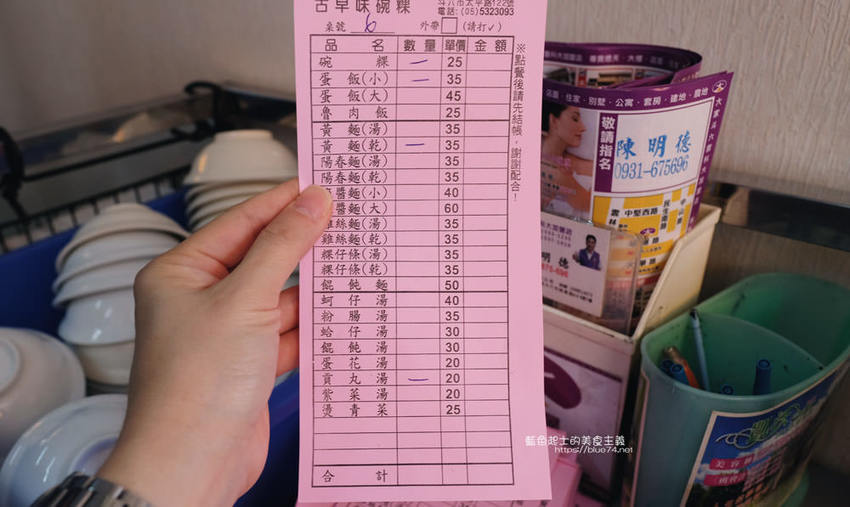 古早味碗粿
斗六市太平路122號
電話:(05)5323093
桌號 6 外帶 □ (請打✓)
品名 數量 單價 金額
碗粿 一 25
蛋飯(小) 一 35
蛋飯(大) 45
魯肉飯 25
黃麵(湯) 35
黃麵(乾) 一 35
陽春麵(湯) 35
陽春麵(乾) 35
醬麵(小) 40
醬麵(大) 60
雞絲麵(湯) 35
雞絲麵(乾) 35
粿仔條(湯) 35
粿仔條(乾) 35
餛飩麵 50
蚵仔湯 40
粉腸湯 35
蛤仔湯 30
餛飩湯 30
蛋花湯 20
貢丸湯 一 20
紫菜湯 20
燙青菜 25
合計
※點餐後請先結帳,謝謝配合!
店面·住家·別墅·公寓·套房·建地·農地
敬請指名
陳明德
0931-675696
雲林
中堅西路
民生南路
中山路
明德
藍色起士的美食主義
https://blue74.net